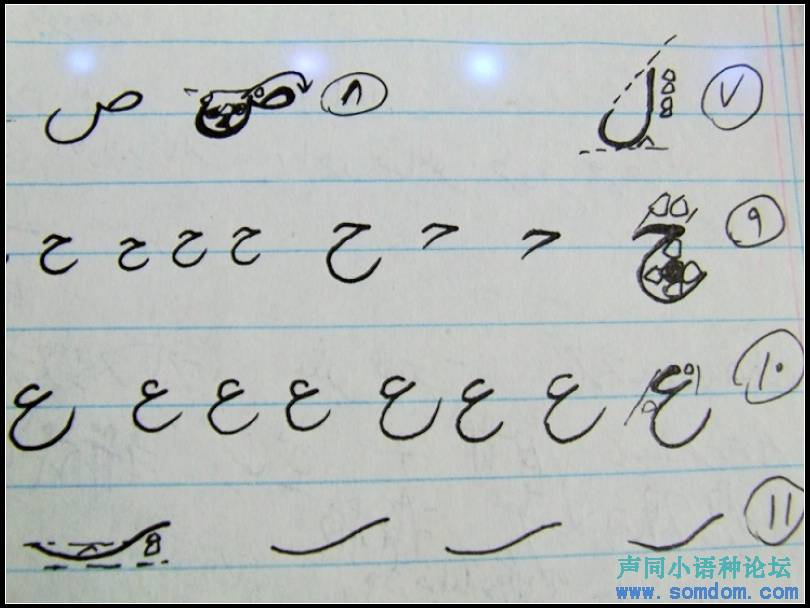 ٧ ل ٨ ص ص
٩ ح ح ح ح ح ح
١٠ ع ع ع ع ع ع ع ع
١١
声同小语种论坛
www.somdom.com